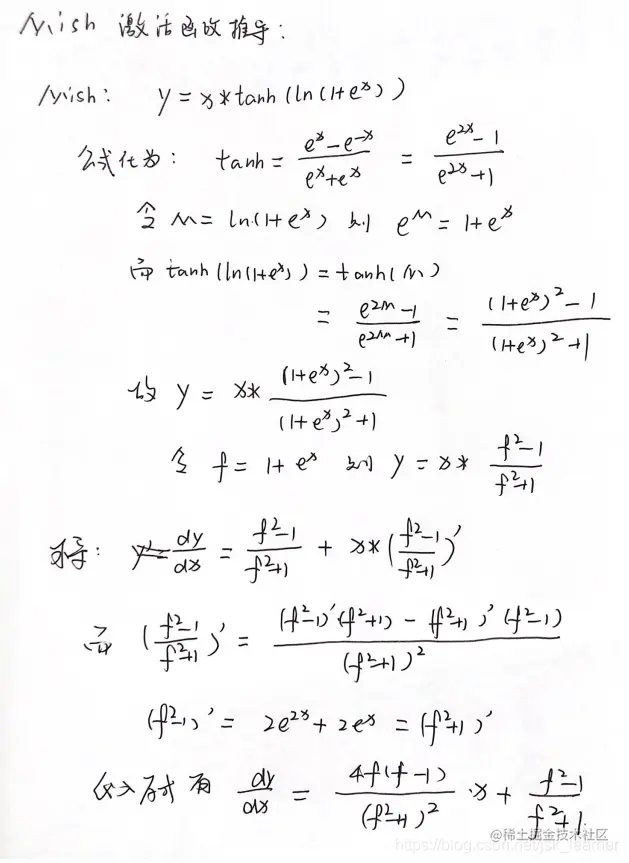 Mish 激活函数推导:
Mish: y = x*tanh(ln(1+e^x))
公式化为: tanh = (e^x - e^-x)/(e^x + e^x) = (e^2x - 1)/(e^2x + 1)
令 M = ln(1+e^x) 则 e^M = 1+e^x
而 tanh(ln(1+e^x)) = tanh(M)
= (e^2M - 1)/(e^2M + 1) = ((1+e^x)^2 - 1)/((1+e^x)^2 + 1)
故 y = x* ((1+e^x)^2 - 1)/((1+e^x)^2 + 1)
令 f = 1+e^x 则 y = x* (f^2-1)/(f^2+1)
求导: dy/dx = (f^2-1)/(f^2+1) + x*((f^2-1)/(f^2+1))'
而 ((f^2-1)/(f^2+1))' = ((f^2-1)'(f^2+1) - (f^2+1)'(f^2-1))/(f^2+1)^2
(f^2-1)' = 2e^2x + 2e^x = (f^2+1)'
代入原式有 dy/dx = 4f(f-1)/(f^2+1)^2 ·x + (f^2-1)/(f^2+1)
@稀土掘金技术社区
https://blog.csdn.net/jsk_learner